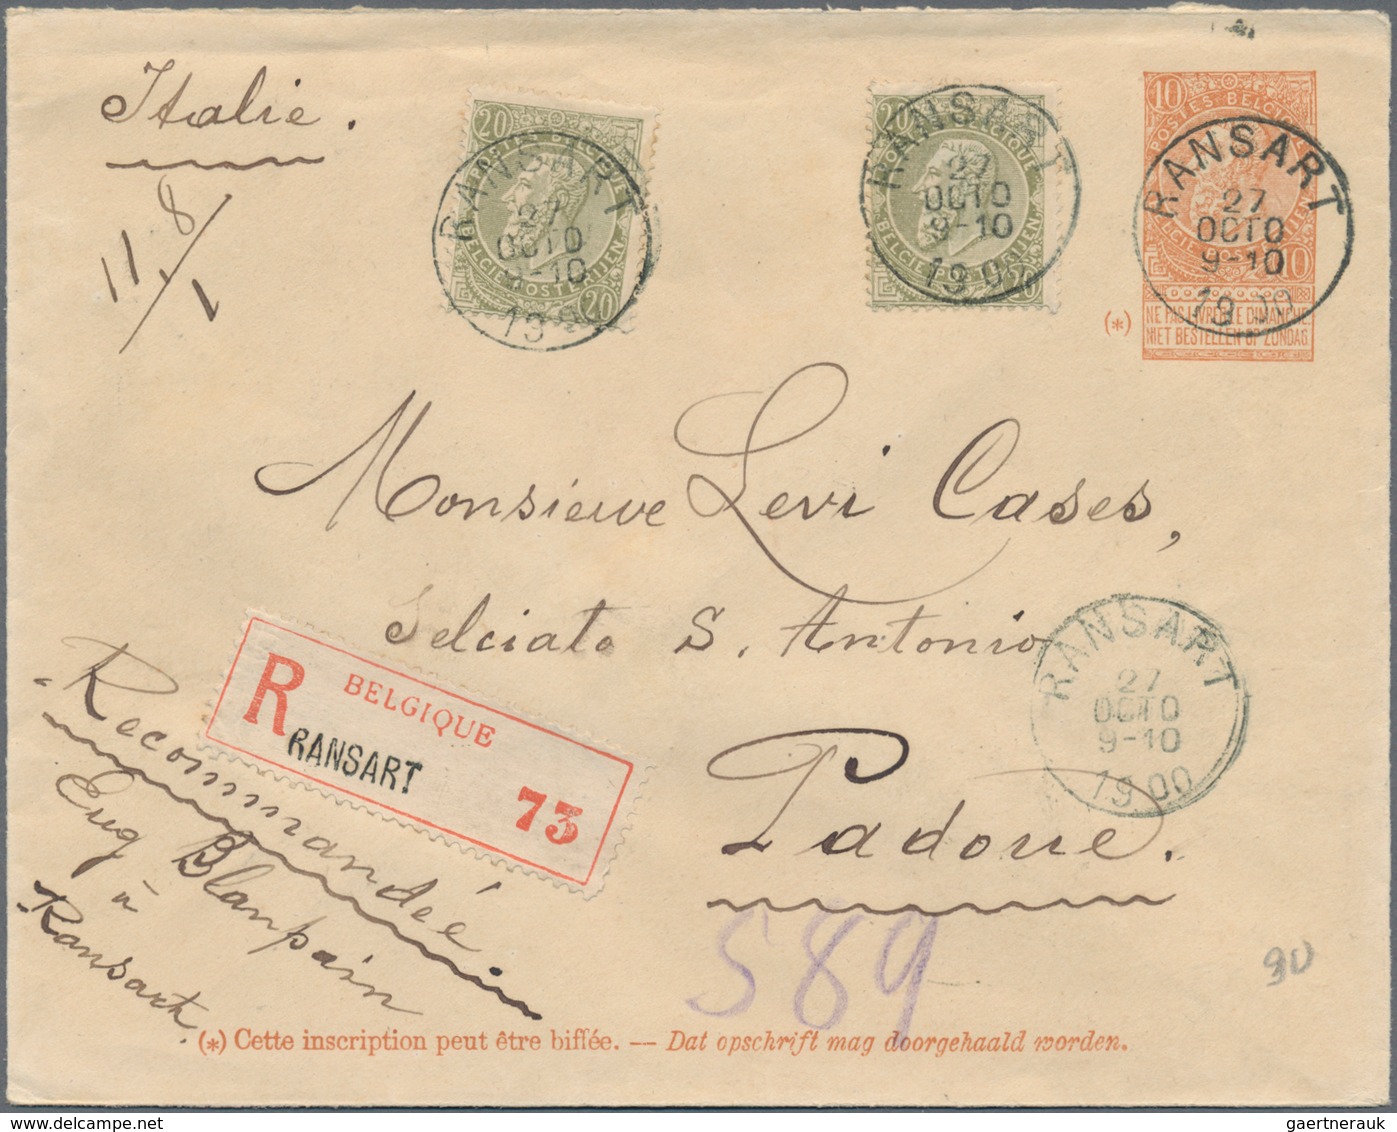 Italie.
11. 8/1
20 20
RANSART
27
OCTO
9-10
1900
20
RANSART
27
OCTO
9-10
1900
10
POSTES BELGIQUE
RANSART
27
OCTO
9-10
1900
10
(*)
NE PAS LIVRER LE DIMANCHE
NIET BESTELLEN OP ZONDAG.
Monsieur Levi Cases,
Selciato S. Antonio
Padoue.
RANSART
27
OCTO
9-10
1900
R BELGIQUE
RANSART
73
Recommandée
Eug Blanpain
à
Ransart.
589
90
(*) Cette inscription peut être biffée. — Dat opschrift mag doorgehaald worden.
gaertnerauk